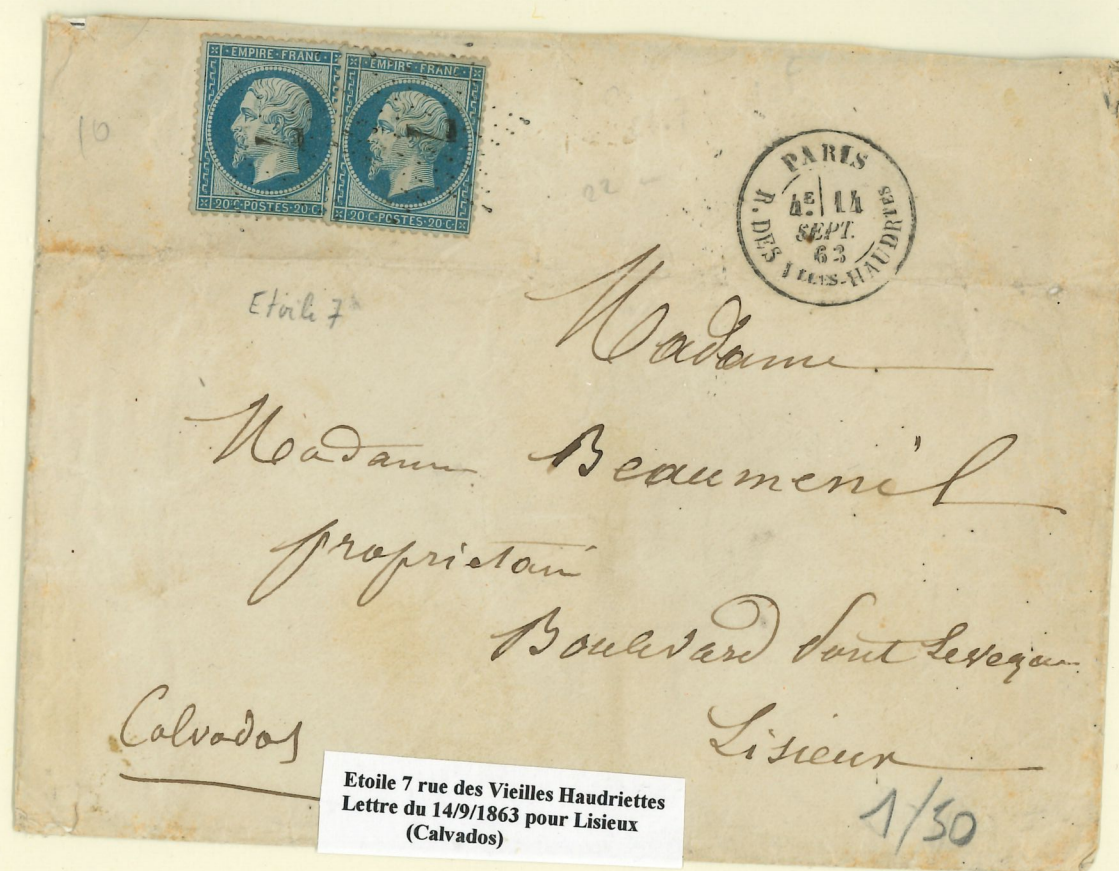 EMPIRE FRANC
EMPIRE FRANC
7
7
20 C POSTES 20 C
20 C POSTES 20 C
10
22 -
PARIS
4E 14
SEPT.
63
R. DES VLLES-HAUDRTES
Etoile 7
Madame
Madame Beaumenil
propriétair
Boulevard Pont Leveque
Lisieux
Calvados
Etoile 7 rue des Vieilles Haudriettes
Lettre du 14/9/1863 pour Lisieux
(Calvados)
1/50